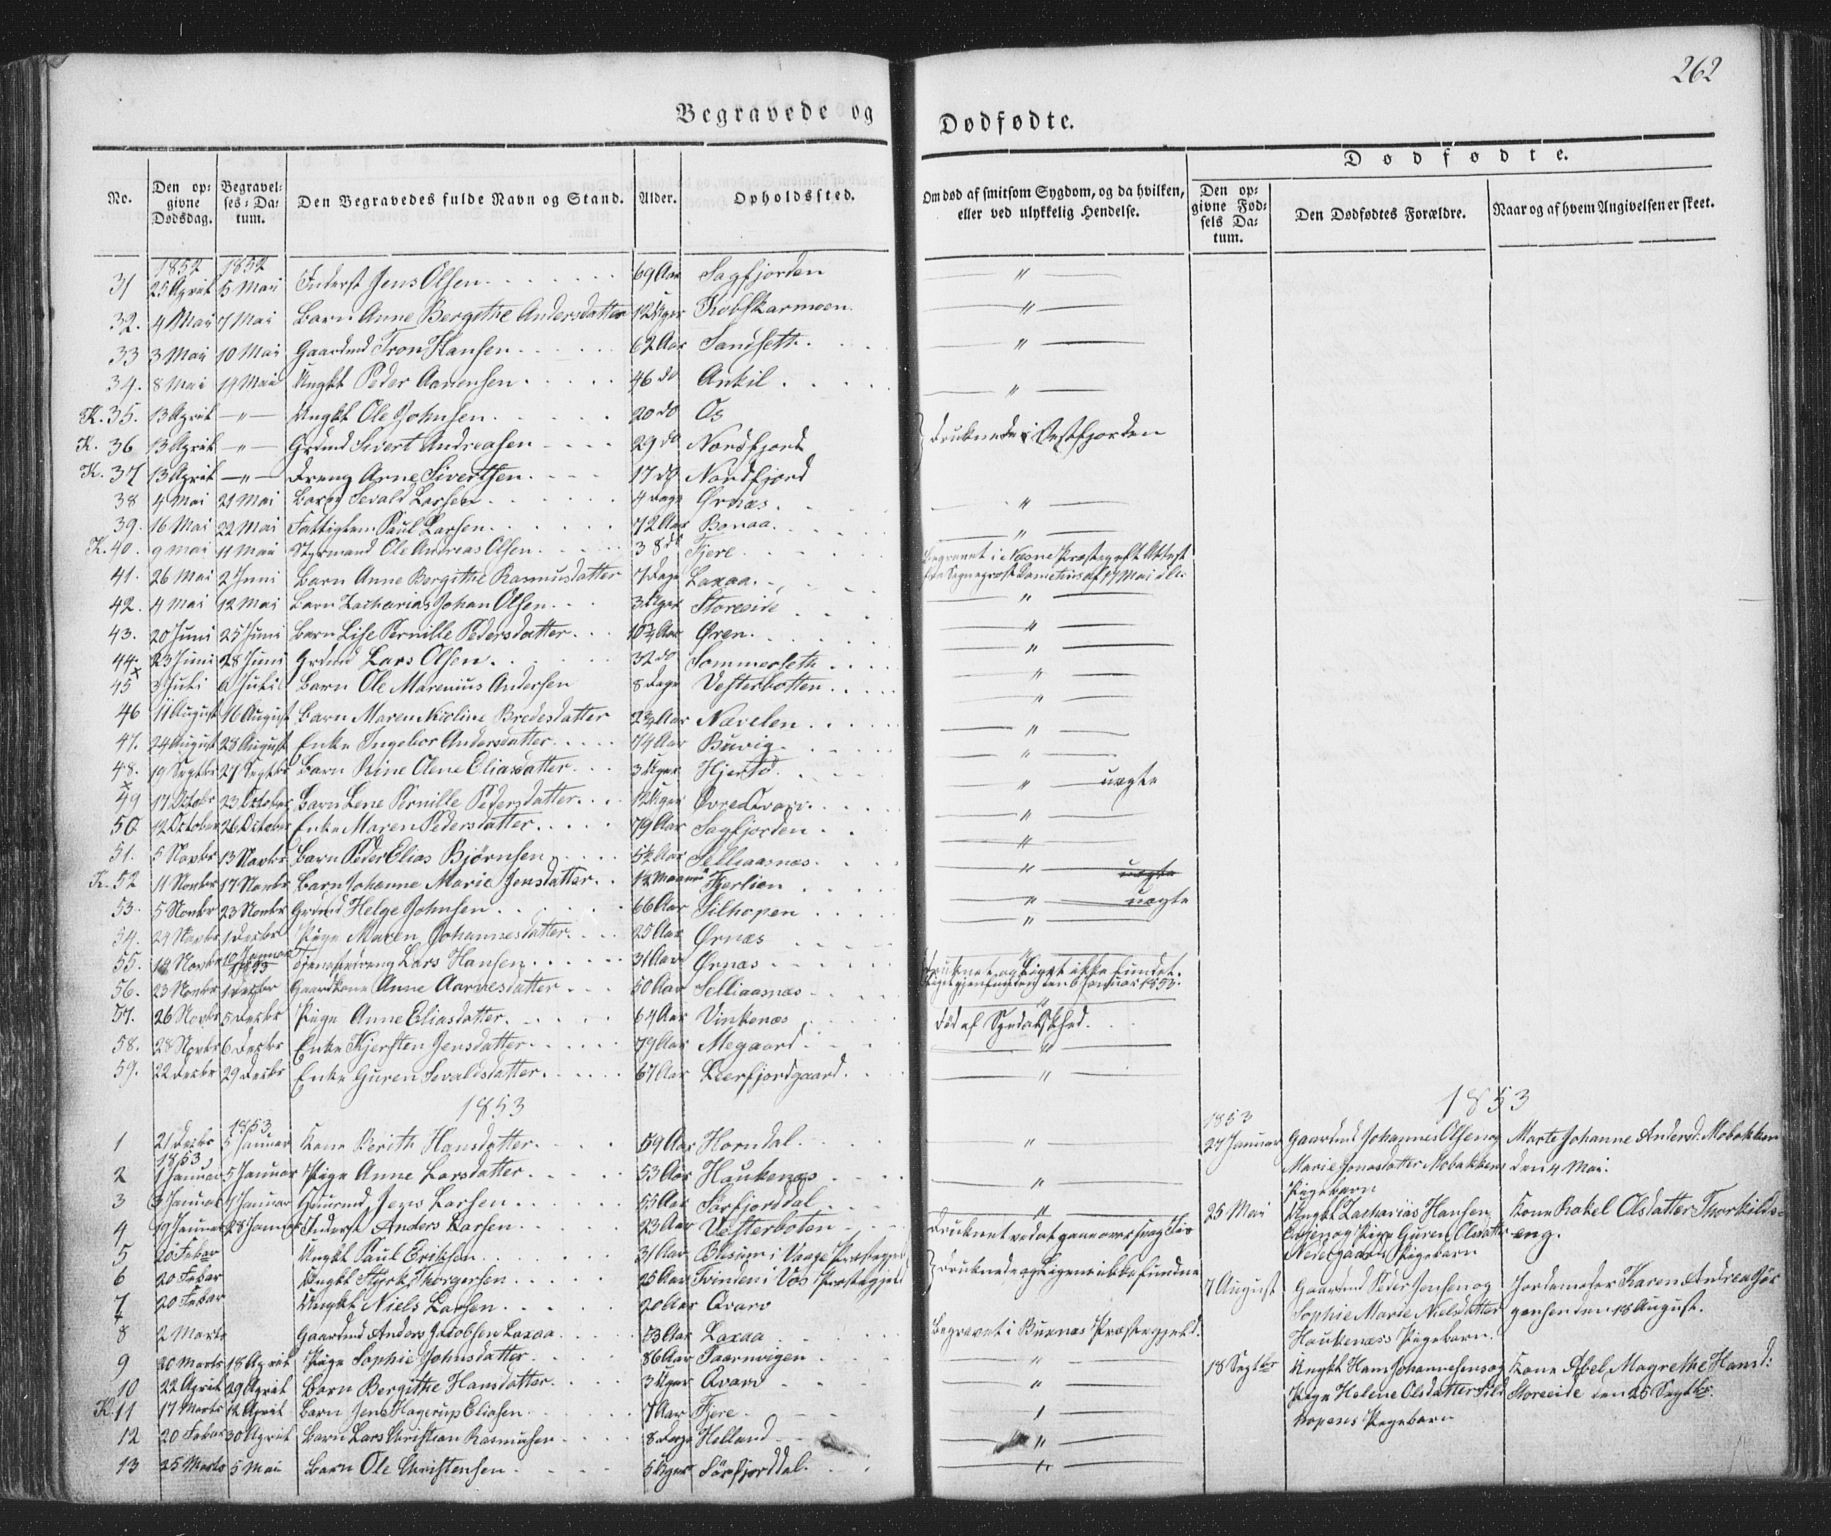 262
Begravede og Dødfødte.
Dødfødte.
No.
Den opgivne Dødsdag.
Begravelses-Datum.
Den Begravedes fulde Navn og Stand.
Alder.
Opholdssted.
Om død af smitsom Sygdom, og da hvilken, eller ved ulykkelig Hendelse.
Den opgivne Fødsels Datum.
Den Dødfødtes Forældre.
Naar og af hvem Angivelsen er skeet.
1852 1852
31 25 April 5 Mai Inderst Jens Olsen 69 Aar Sagfjorden "
32. 4 Mai 7 Mai Barn Anne Bergithe Andersdatter 12 Uger Kobskarmoen "
33 3 Mai 10 Mai Gaardmd Tron Hansen 62 Aar Sandseth "
34. 8 Mai 19 Mai Ungkl Peder Arnensen 46 do Ankil "
K. 35. 13 April " Ungkl Ole Johnsen 20 do Os
K. 36 13 April " Grdmd Sivert Andreasen 29 do Nordfjord druknede i Vestfjorden
K. 37 13 April " Dreng Arne Sivertsen 17 do Nordfjord
38 4 Mai 21 Mai Barn Sevald Larsen 4 Dage Ørnæs "
39. 16 Mai 22 Mai Fattiglem Paul Larsen 72 Aar Bonaa "
K. 40. 9 Mai 11 Mai Styrmand Ole Andreas Olsen 38 do Fjere Begravet i Næsne Præstegjeld Attest
fra Sogneprest af 17 Mai
41. 26 Mai 2 Juni Barn Anne Bergithe Rasmusdatter 7 Dage Laxaa "
42. 4 Mai 12 Mai Barn Zacharias Johan Olsen 3 Uger Storeide "
43. 20 Juni 25 Juni Barn Lise Pernille Pedersdatter 10¾ Aar Øren "
44. 23 Juni 28 Juni Grdmd Lars Olsen 32 do Sommerseth "
x
45 3 Juli 6 Juli Barn Ole Marenius Andersen 8 Dage Vesterbotten "
46 11 August 16 August Barn Maren Nicoline Bredesdatter 2¾ Aar Nævelen "
47. 24 August 28 August Enke Ingebor Andersdatter 74 Aar Buvig "
48. 19 Septbr 21 Septbr Barn Rine Olene Eliasdatter 3 Uger Hjertø " uægte
x
49 17 Octobr 23 October Barn Lene Pernille Pedersdatter 12 Uger Øvre Qvarv "
50 12 October 26 October Enke Maren Pedersdatter 79 Aar Sagfjorden "
51. 5 Novbr 13 Novbr Barn Peder Elias Bjørnsen 5½ Aar Selliaasnæs " uægte
K. 52 11 Novbr 17 Novbr Barn Johanne Marie Jensdatter Fjerlien " uægte
53. 5 Novbr 23 Novbr Grdmd Helge Johnsen 66 Aar Silhopen "
54. 24 Novbr 1 Decbr Pige Maren Johannesdatter 25 Aar Ørnæs "
55. 14 Novbr 10 Januar 1853 Tjenestedreng Lars Hansen 31 Aar Ørnæs Druknet og Liget ikke fundet.
Liget gjenfundet den 6 Januar 1853.
56. 23 Novbr 1 Decbr Gaardkone Anne Aarnesdatter 50 Aar Selliaasnæs "
57. 26 Novbr 5 Decbr Pige Anne Eliasdatter 64 Aar Vinkenæs Død af Spedalskhed.
58. 28 Novbr 6 Decbr Enke Kjersten Jensdatter 79 Aar Megaard "
59. 22 Decbr 29 Decbr Enke Guren Sevaldsdatter 67 Aar Leerfjordgaard "
1853
1853
1 21 Decbr 1853 5 Januar Kone Berith Hansdatter 59 Aar Horndal "
1853
2 1 Januar 5 Januar Pige Anne Larsdatter 53 Aar Haukenæs "
3 3 Januar 7 Januar Gaardmd Jens Larsen 55 Aar Sørfjorddal "
4 19 Januar 28 Januar Inderst Anders Larsen 23 Aar Vesterboten Druknet ved at gaae over svag Iis
5 20 Febar Ungkl Paul Eriksen 31 Aar i Vaage Præstegjeld
6 20 Febar Ungkl Styrk Thorgersen 25 Aar Tvinden i Vos Præstegjeld druknede og Ligene ikke fundne
7 20 Febar Ungkl Niels Larsen 20 Aar Qvarv
8 2 Marts Gaardmd Anders Jacobsen Laxaa 53 Aar Laxaa Begravet i Buknæs Præstegjeld.
9 20 Marts 18 April Pige Sophie Johnsdatter 86 Aar Taarnvigen "
10 22 April 29 April Barn Bergithe Hansdatter 3 Uger Qvarv "
K. 11 17 Marts 12 April Barn Jens Hagerup Eliasen 7 Aar Fjere "
12 20 Febar 30 April Barn Lars Christian Rasmusen 8 Dage Helland "
13 25 Marts 5 Mai Barn Ole Christensen 5 Uger Sørfjorddal "
1853
27 Januar Gaardmd Johannes Olsen og Marie Jonasdatter Mobakken Pigebarn Marte Johanne Andersd: Mobakken den 4 Mai.
25 Mai Ungkl Zacharias Hansen og Pige Guren Olsdatter Pigebarn Kone Rakel Olsdatter Thorkildseng.
7 August Gaardmd Peder Jensen og Sophie Marie Nielsdatter Haukenæss Pigebarn. Jordemoder Karen Andrea Jørgensen den 18 August.
18 Septbr Ungkl Hans Johannesen og Pige Helene Olsdatter Silhopens Pigebarn Kone Abel Magrethe Hansd: Storeide den 25 Septbr.